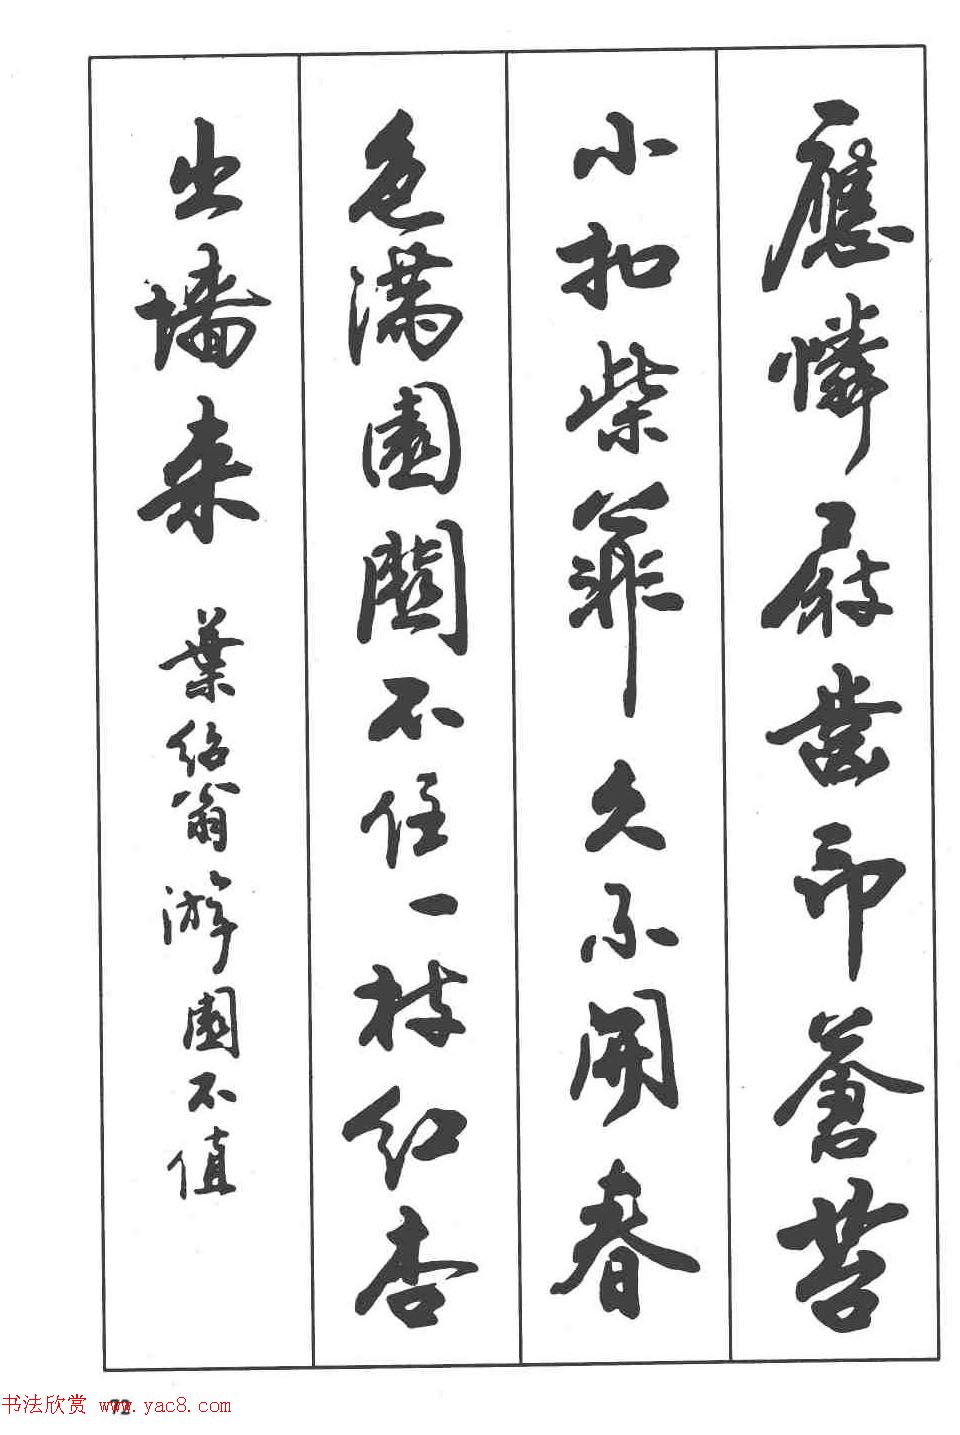 應憐屐齒印蒼苔
小扣柴扉久不開春
色满園關不住一枝红杏
出墙来 葉绍翁游園不值
72
书法欣赏 www.yac8.com